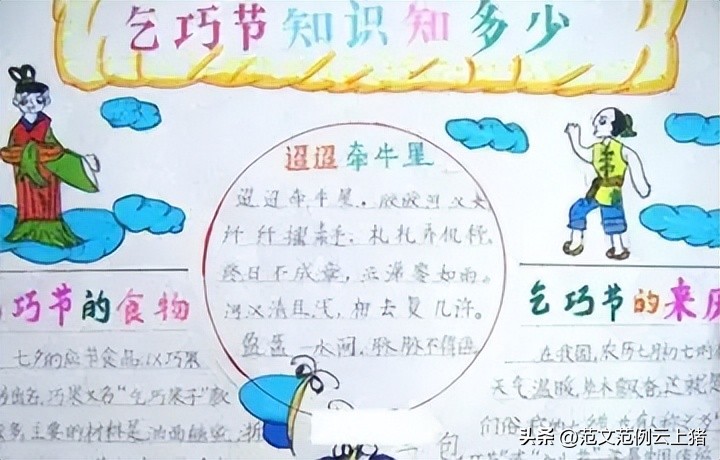 乞巧节知识知多少
迢迢牵牛星
迢迢牵牛星，皎皎河汉女
纤纤擢素手，札札弄机杼。
终日不成章，泣涕零如雨。
河汉清且浅，相去复几许。
盈盈一水间，脉脉不得语
巧节的食物
七夕的应节食品，以巧果
出名，巧果又名“乞巧果子”款
多，主要的材料是油面
乞巧节的来历
在我国，农历七月初七的
天气温暖，草木飘香，这就是
们俗
包
头条 @范文范例云上猪